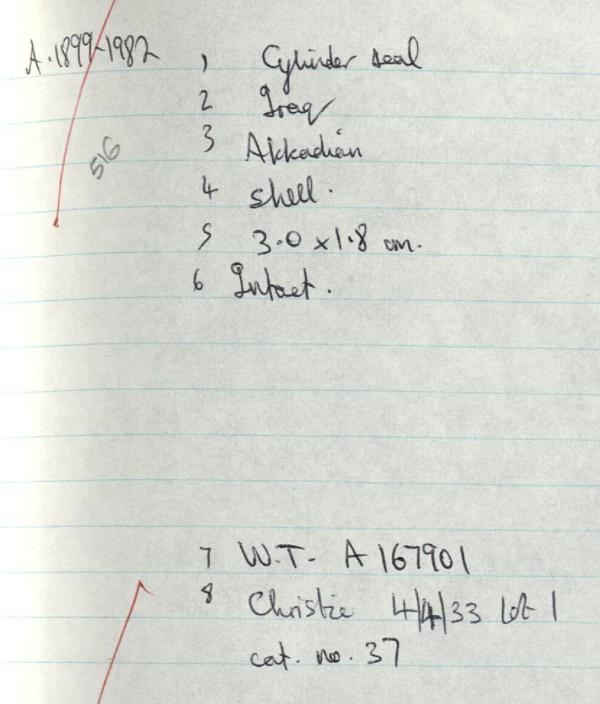 A.1899-1982 1 Cylinder seal
2 Iraq
516
3 Akkadian
4 shell.
5 3.0 x 1.8 cm.
6 Intact.
7 W.T- A 167901
8 Christie 4/4/33 Lot 1
cat. no. 37